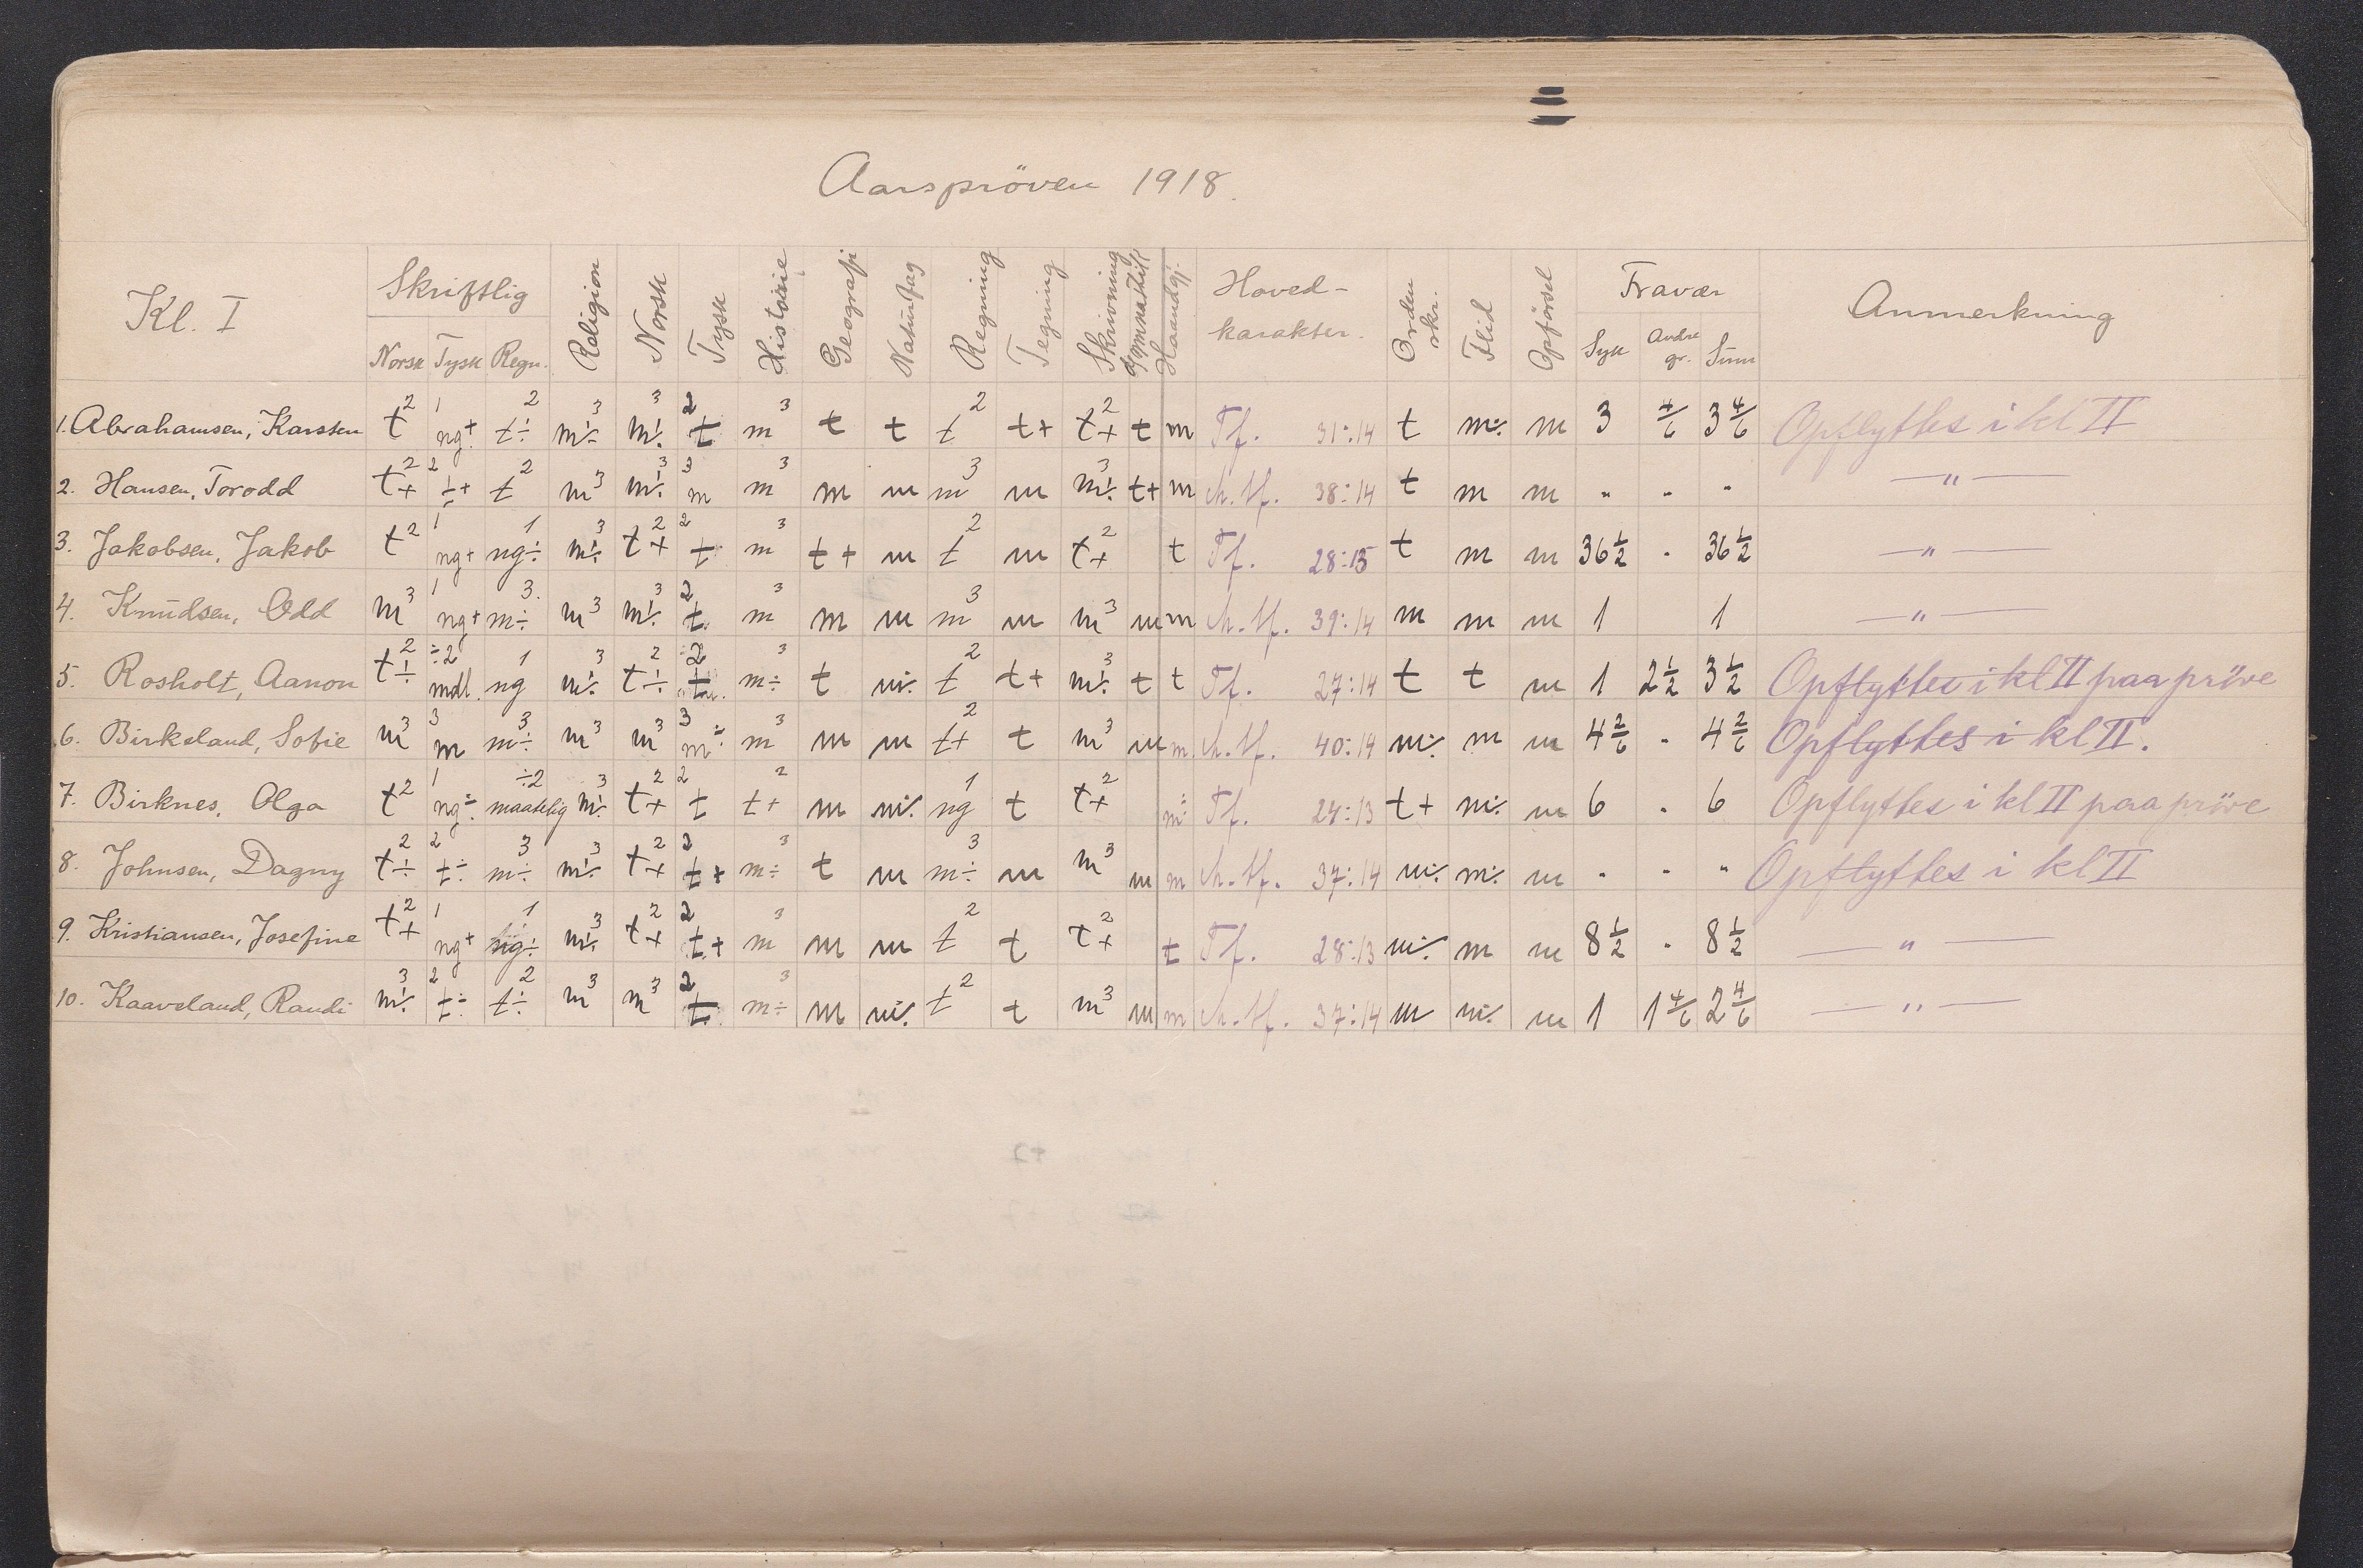 Aarspröven 1918.
Kl. I Skriftlig Religion Norsk Tysk Historie Geografi Naturfag Regning Tegning Skrivning Gymnastik Haandgj. Hoved- karakter. Orden skr. Flid Opförsel Fravær Anmerkning
Norsk Tysk Regn. Syk Andre gr. Sum
1. Abrahamsen, Karsten t² ng+ 1 t÷ 2 m÷ 3 m÷ 3 t 2 m 3 t t t 2 t+ t+ 2 t m Tf. 31:14 t m÷ m 3 4/6 3 4/6 Opflyttes i kl II
2. Hansen, Torodd t+ 2 t+ 2 t 2 m 3 m÷ 3 m 3 m 3 m m m 3 m m÷ 3 t+ m M.tf. 38:14 t m m " " " — " —
3. Jakobsen, Jakob t² ng+ 1 ng÷ 1 m÷ 3 t+ 2 t 2 m 3 t+ m t 2 m t+ 2 t Tf. 28:13 t m m 36 1/2 " 36 1/2 — " —
4. Knudsen, Odd m³ ng+ 1 m÷ 3 m 3 m÷ 3 t 2 m 3 m m m 3 m m 3 m m M.tf. 39:14 m m m 1 1 — " —
5. Rosholt, Aanon t÷ 2 mdl. ÷2 ng 1 m÷ 3 t÷ 2 t 2 m÷ 3 t m÷ t 2 t+ m÷ 3 t t Tf. 27:14 t t m 1 2 1/2 3 1/2 Opflyttes i kl II paa pröve
6. Birkeland, Sofie m³ m 3 m÷ 3 m 3 m 3 m÷ 3 m 3 m m t+ 2 t m 3 m m M.tf. 40:14 m÷ m m 4 2/6 " 4 2/6 Opflyttes i kl II.
7. Birknes, Olga t² ng÷ 1 maatelig ÷2 m÷ 3 t+ 2 t 2 t+ 2 m m÷ ng 1 t t+ 2 m÷ Tf. 24:13 t+ m÷ m 6 " 6 Opflyttes i kl II paa pröve
8. Johnsen, Dagny t÷ 2 t÷ 2 m÷ 3 m÷ 3 t+ 2 t+ 2 m÷ 3 t m m÷ 3 m m 3 m m M.tf. 37:14 m÷ m÷ m " " " Opflyttes i kl II
9. Kristiansen, Josefine t+ 2 ng+ 1 ng÷ 1 m÷ 3 t+ 2 t+ 2 m 3 m m t 2 t t+ 2 t Tf. 28:13 m÷ m m 8 1/2 " 8 1/2 — " —
10. Kaaveland, Randi m÷ 3 t÷ 2 t÷ 2 m 3 m 3 t 2 m÷ 3 m m÷ t 2 t m 3 m m M.tf. 37:14 m m÷ m 1 1 4/6 2 4/6 — " —